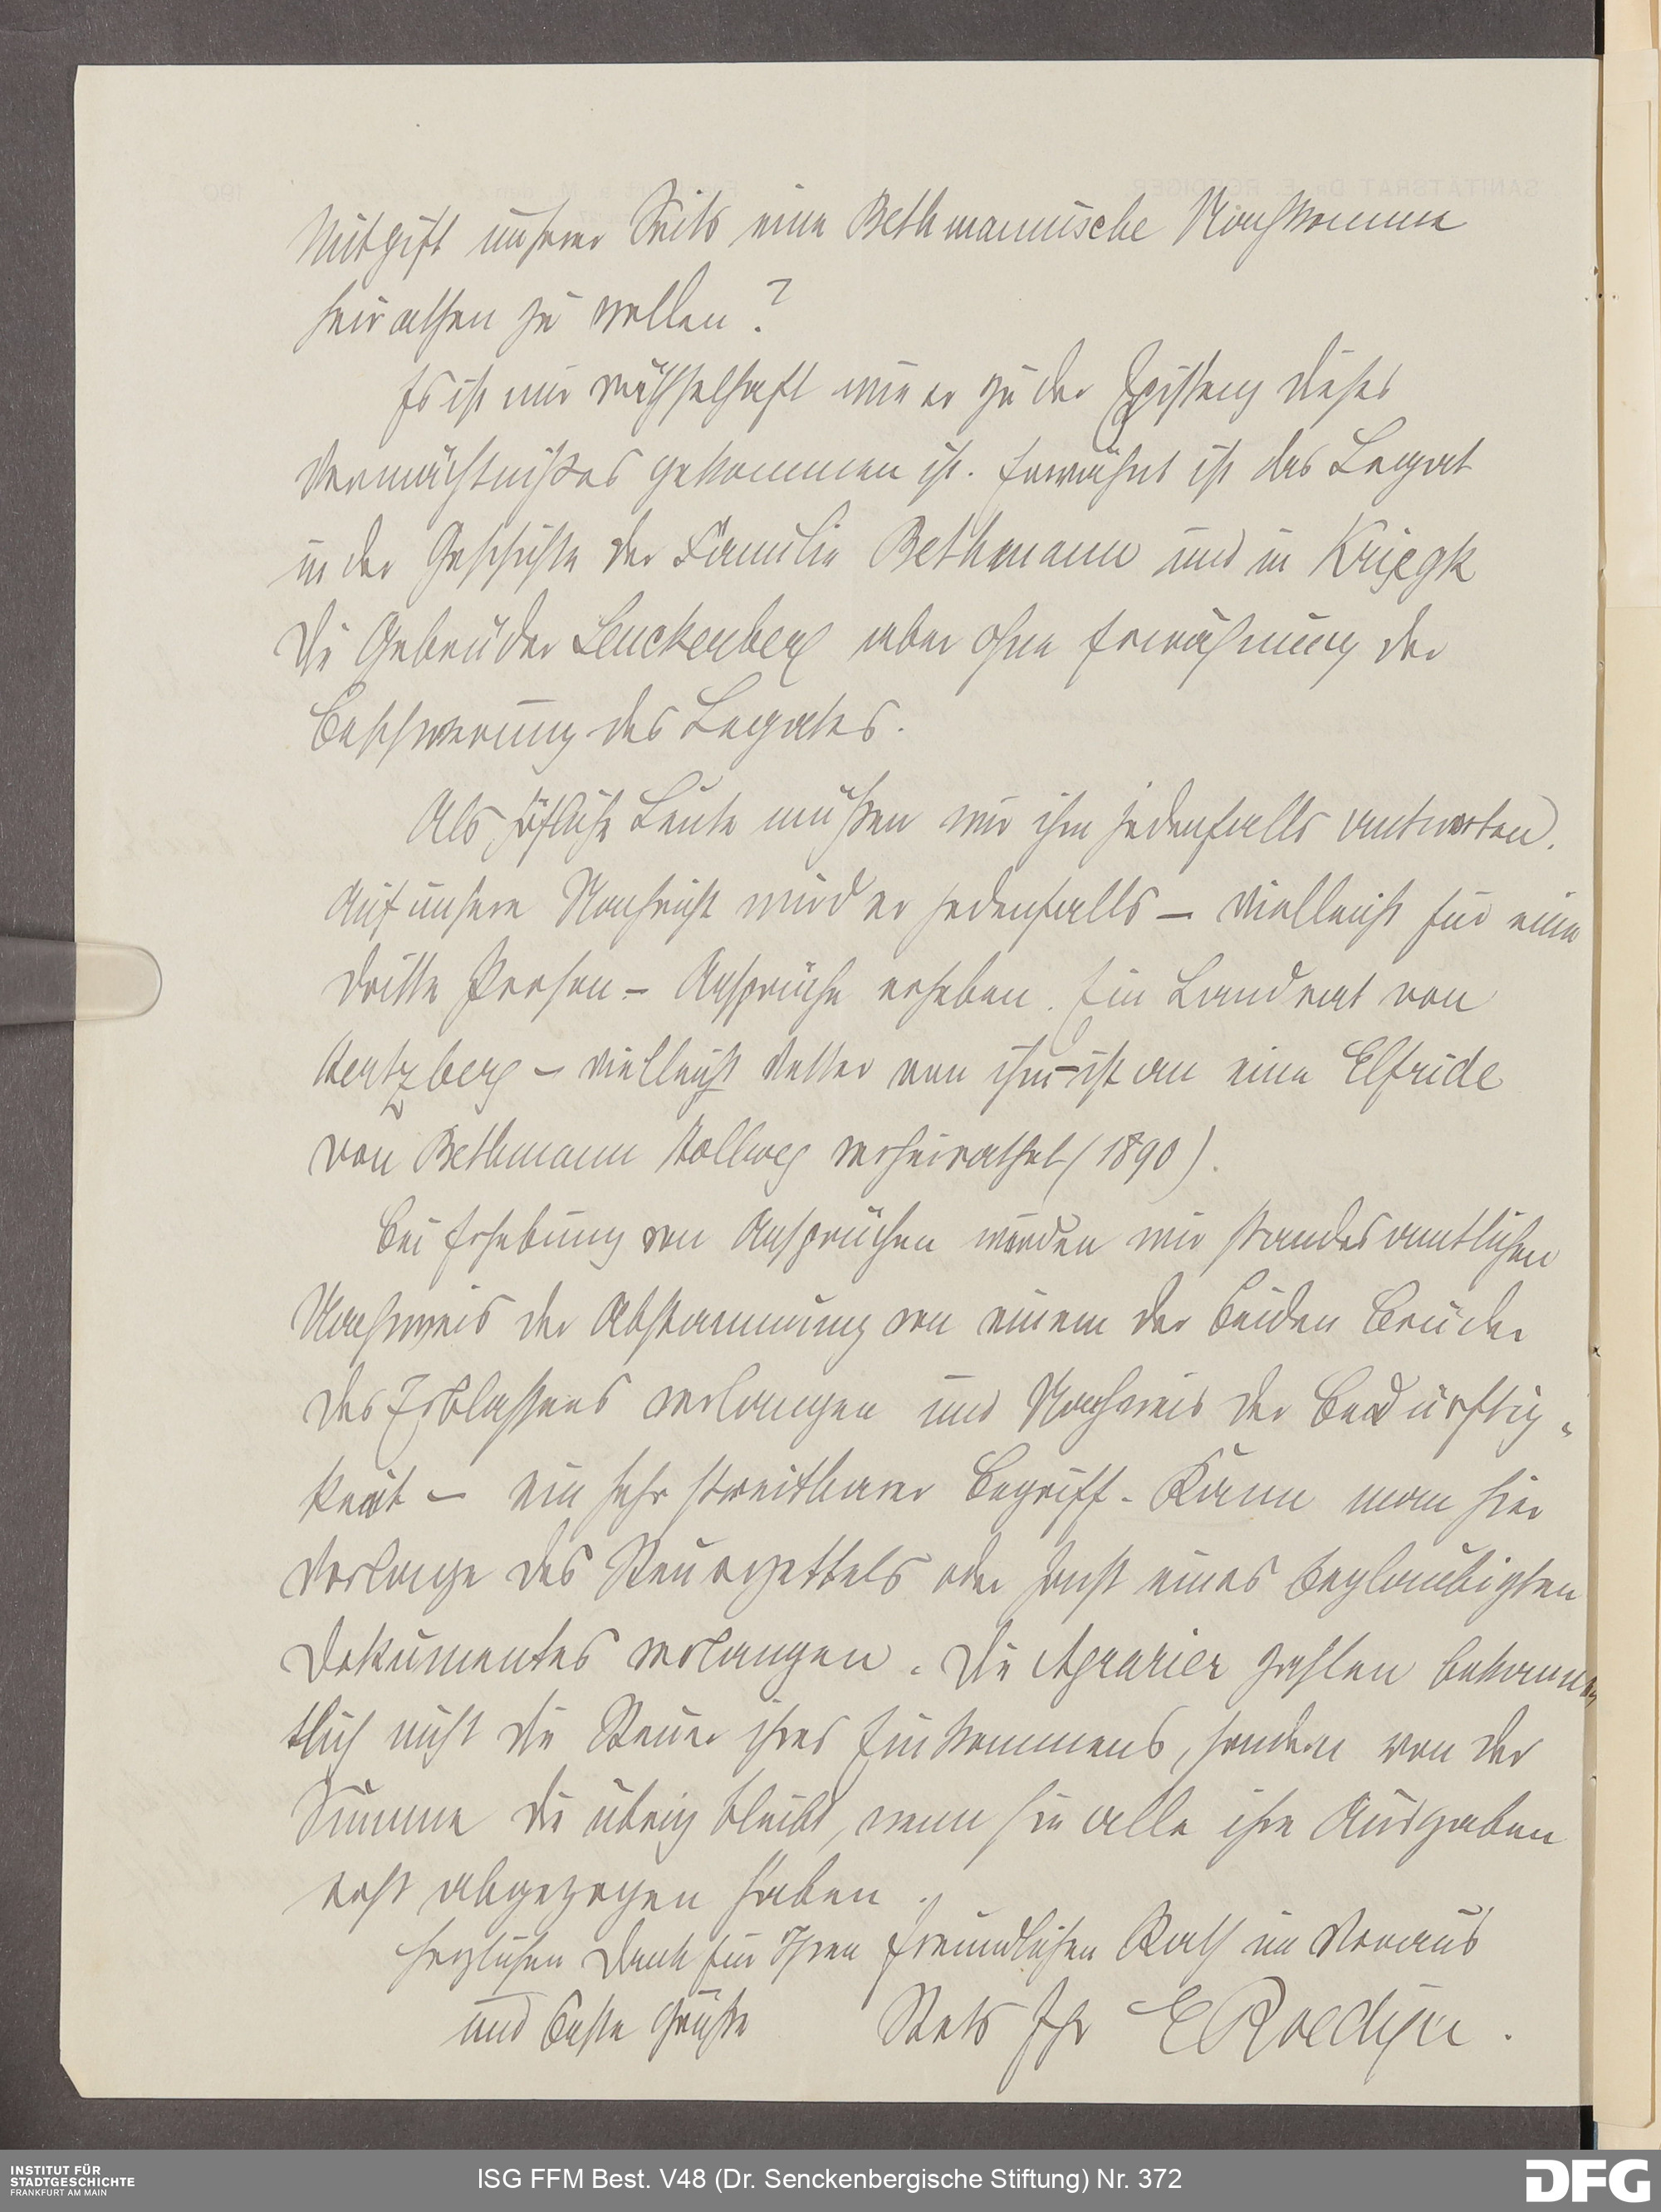 Mitgift unserer Seits eine Bethmannische Nachkomme
heirathen zu wollen?
Es ist mir räthselhaft wie er zu der Existenz dieses
Vermächtnißes gekommen ist. Erwähnt ist das Legat
in der Geschichte der Familie Bethmann und in Kriegk
Die Gebrüder Senckenberg aber ohne Erwähnung der
Beschwerung des Legates.
Als höfliche Leute müßen wir ihm jedenfalls antworten.
Auf unsere Nachricht wird er jedenfalls – vielleicht für eine
dritte Person – Ansprüche erheben. Ein Landrat von
Hertzberg – vielleicht Vetter von ihm – ist an eine Elfride
von Bethmann Hollweg verheirathet (1890).
Bei Erhebung von Ansprüchen würden wir standesamtlichen
Nachweis der Abstammung von einem der beiden Brüder
des Erblassers verlangen und Nachweis der Bedürftig-
keit – ein sehr streitbarer Begriff. Kann man hier
Vorlage des Steuerzettels oder sonst eines beglaubigten
Dokumentes verlangen. Die Agrarier zahlen bekann
tlich nicht die Steuer ihres Einkommens, sondern von der
Summe die übrig bleibt, wenn sie alle ihre Ausgaben
erst abgezogen haben.
Herzlichen Dank für Ihren freundlichen Rath im Voraus
und beste Grüße Stets Ihr E Roediger.
INSTITUT FÜR
STADTGESCHICHTE
FRANKFURT AM MAIN
ISG FFM Best. V48 (Dr. Senckenbergische Stiftung) Nr. 372
DFG